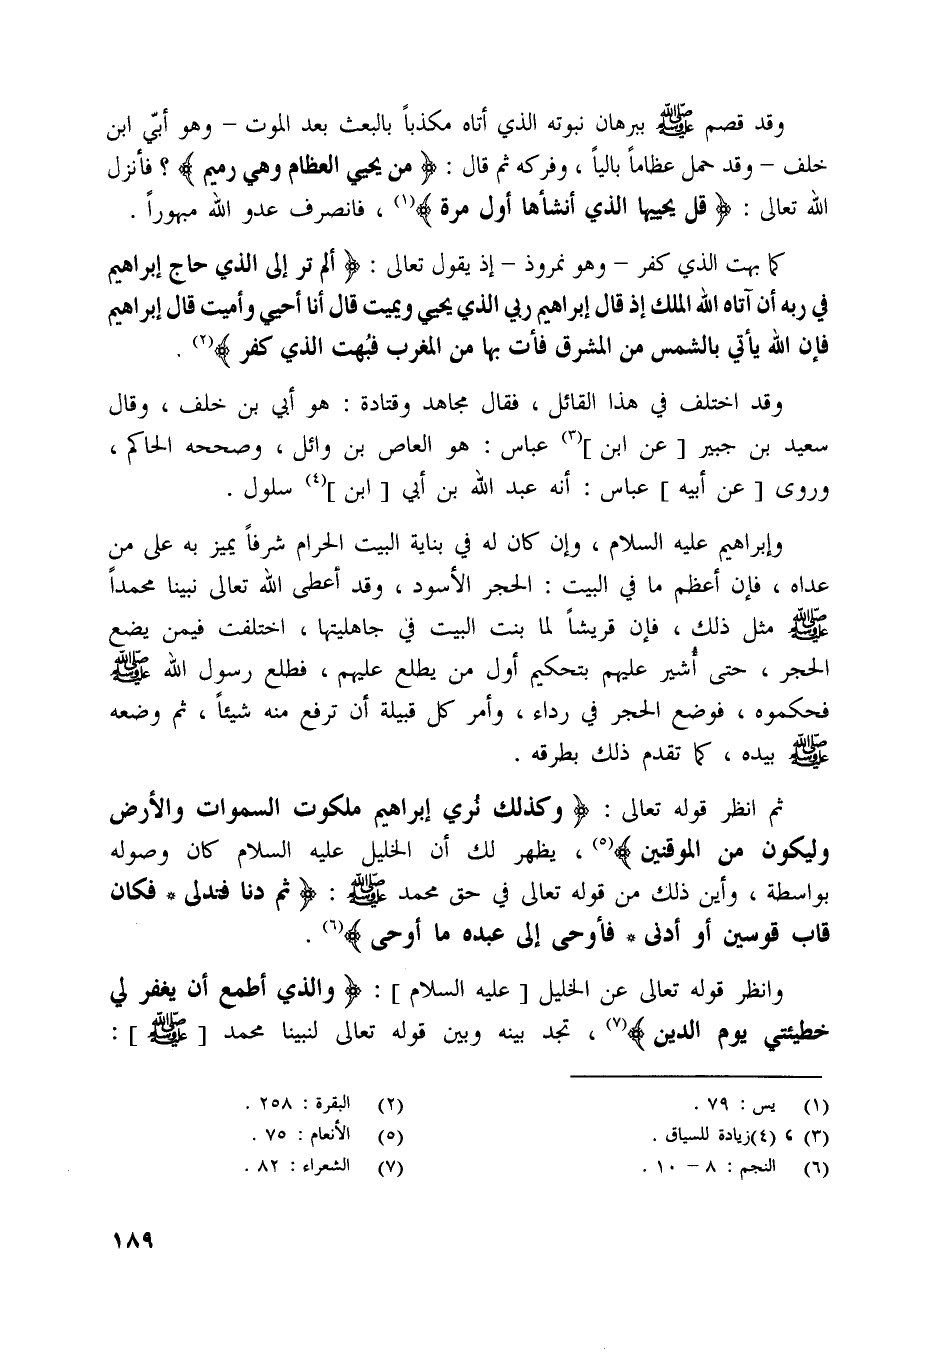 وقد قصم ﷺ ببرهان نبوته الذي أتاه مكذباً بالبعث بعد الموت – وهو أبيّ ابن
خلف – وقد حمل عظاماً بالياً ، وفركه ثم قال : ﴿ من يحيي العظام وهي رميم ﴾ ؟ فأنزل
الله تعالى : ﴿ قل يحييها الذي أنشأها أول مرة ﴾(١) ، فانصرف عدو الله مبهوراً .
كما بهت الذي كفر – وهو نمروذ – إذ يقول تعالى : ﴿ ألم تر إلى الذي حاج إبراهيم
في ربه أن آتاه الله الملك إذ قال إبراهيم ربي الذي يحيي ويميت قال أنا أحيي وأميت قال إبراهيم
فإن الله يأتي بالشمس من المشرق فأت بها من المغرب فبُهت الذي كفر ﴾(٢) .
وقد اختلف في هذا القائل ، فقال مجاهد وقتادة : هو أبي بن خلف ، وقال
سعيد بن جبير [ عن ابن ](٣) عباس : هو العاص بن وائل ، وصححه الحاكم ،
وروى [ عن أبيه ] عباس : أنه عبد الله بن أبي [ ابن ](٤) سلول .
وإبراهيم عليه السلام ، وإن كان له في بناية البيت الحرام شرفاً يميز به على من
عداه ، فإن أعظم ما في البيت : الحجر الأسود ، وقد أعطى الله تعالى نبينا محمداً
ﷺ مثل ذلك ، فإن قريشاً لما بنت البيت في جاهليتها ، اختلفت فيمن يضع
الحجر ، حتى أُشير عليهم بتحكيم أول من يطلع عليهم ، فطلع رسول الله ﷺ
فحكموه ، فوضع الحجر في رداء ، وأمر كل قبيلة أن ترفع منه شيئاً ، ثم وضعه
ﷺ بيده ، كما تقدم ذلك بطرقه .
ثم انظر قوله تعالى : ﴿ وكذلك نُري إبراهيم ملكوت السموات والأرض
وليكون من الموقنين ﴾(٥) ، يظهر لك أن الخليل عليه السلام كان وصوله
بواسطة ، وأين ذلك من قوله تعالى في حق محمد ﷺ : ﴿ ثم دنا فتدلى * فكان
قاب قوسين أو أدنى * فأوحى إلى عبده ما أوحى ﴾(٦) .
وانظر قوله تعالى عن الخليل [ عليه السلام ] : ﴿ والذي أطمع أن يغفر لي
خطيئتي يوم الدين ﴾(٧) ، تجد بينه وبين قوله تعالى لنبينا محمد [ ﷺ ] :
(١) يس : ٧٩ .
(٢) البقرة : ٢٥٨ .
(٣) ، (٤)زيادة للسياق .
(٥) الأنعام : ٧٥ .
(٦) النجم : ٨ – ١٠ .
(٧) الشعراء : ٨٢ .
١٨٩